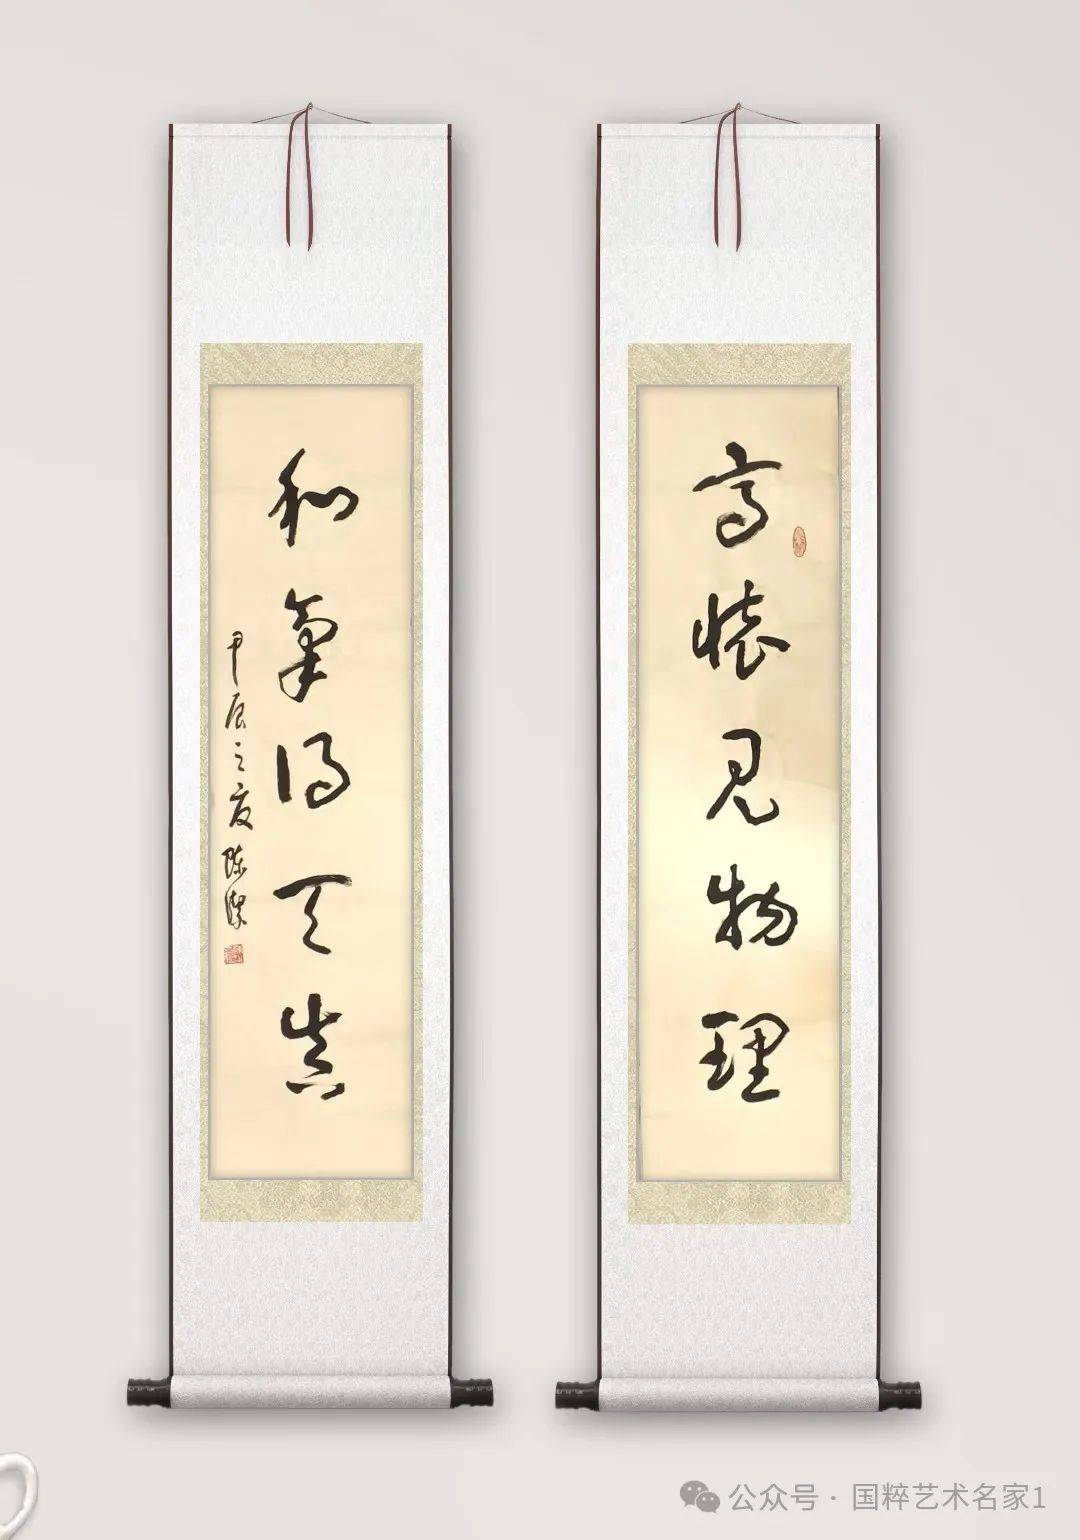 高怀见物理
和气得天真
甲辰之夏陈洁
公众号·国粹艺术名家1